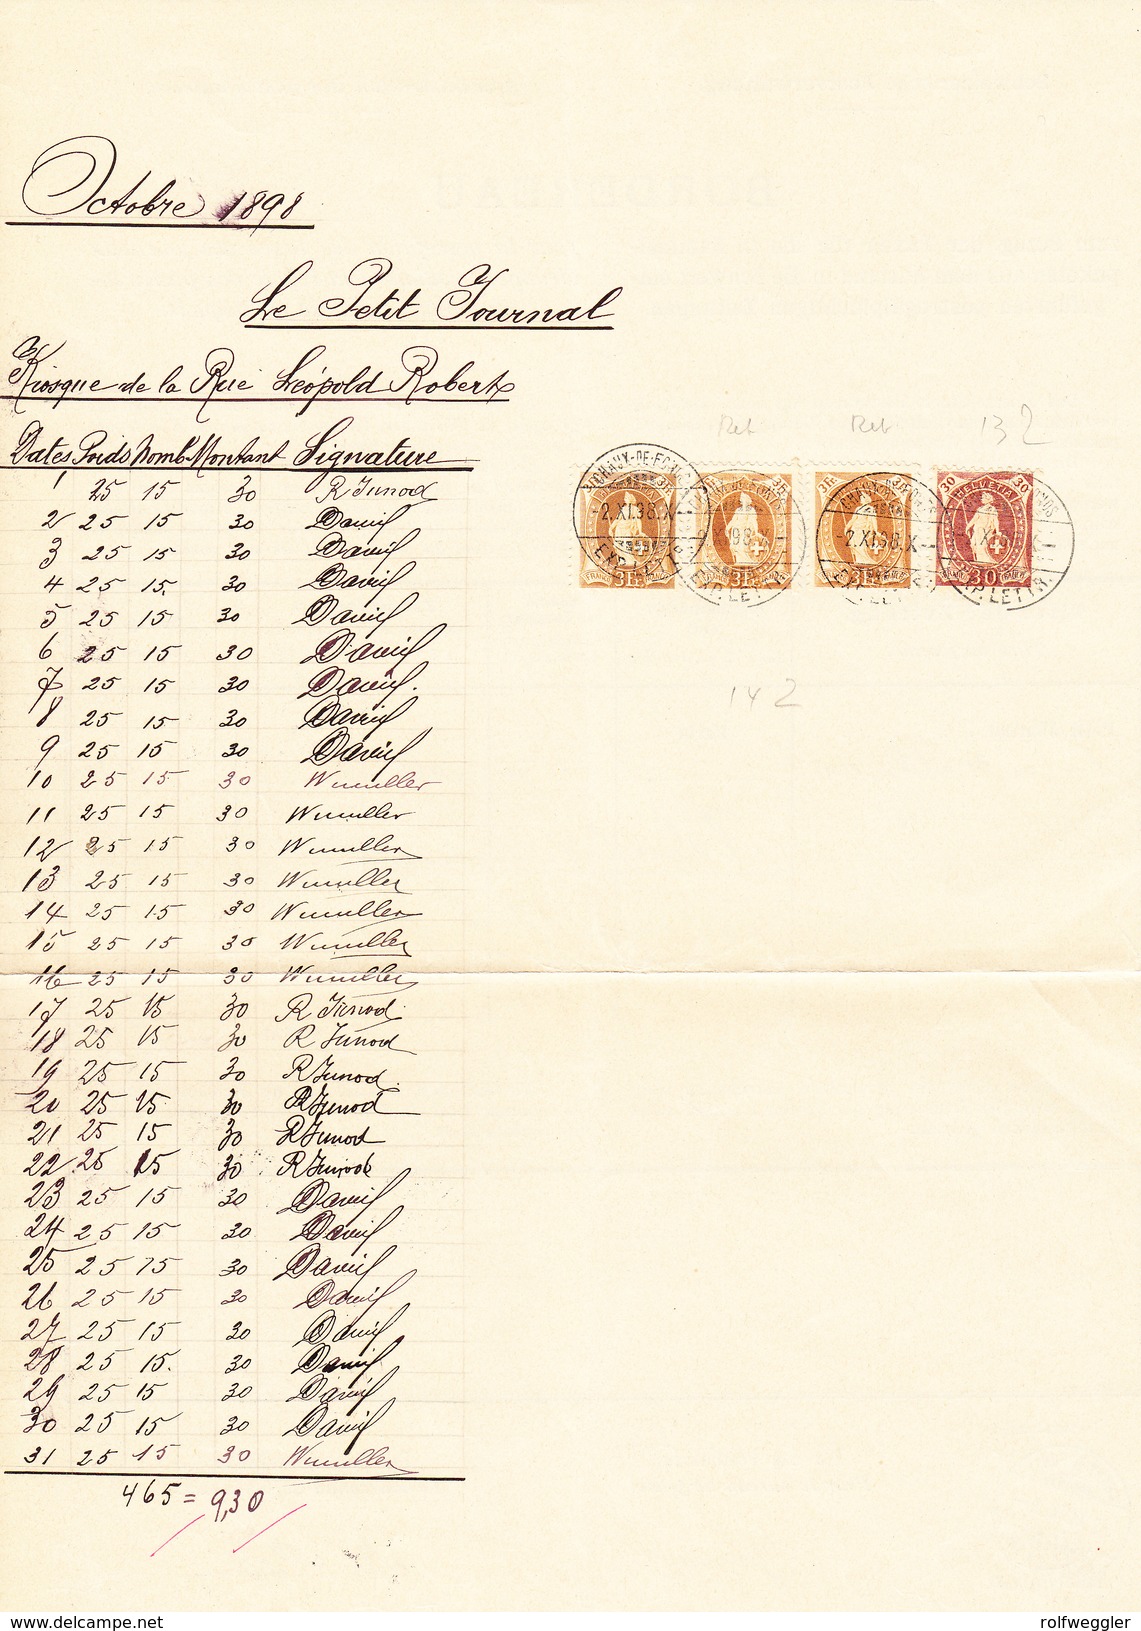 Octobre 1898
Le Petit Journal
Kiosque de la Rue Léopold Robert
Dates Poids Nomb. Montant Signature
1 25 15 30 R Junod
2 25 15 30 Daniel
3 25 15 30 Daniel
4 25 15. 30 Daniel
5 25 15 30 Daniel
6 25 15 30 Daniel
7 25 15 30 Daniel.
8 25 15 30 Daniel
9 25 15 30 Daniel
10 25 15 30 Wumller
11 25 15 30 Wumller
12 25 15 30 Wumller
13 25 15 30 Wumller
14 25 15 30 Wumller
15 25 15 30 Wumller
16 25 15 30 Wumller
17 25 15 30 R Junod
18 25 15 30 R Junod
19 25 15 30 R Junod.
20 25 15 30 R Junod
21 25 15 30 R Junod
22 25 15 30 R Junod
23 25 15 30 Daniel
24 25 15 30 Daniel
25 25 15 30 Daniel
26 25 15 30 Daniel
27 25 15 30 Daniel
28 25 15. 30 Daniel
29 25 15 30 Daniel
30 25 15 30 Daniel
31 25 15 30 Wumller
465 = 9,30
Ret Ret 132
CHAUX-DE-FONDS
-2.XI.98.X-
EXP. LETTR.
3Fr. 3Fr. 3Fr. 30 HELVETIA 30
FRANCO 3Fr. FRANCO
30
142
www.delcampe.net
rolfweggler